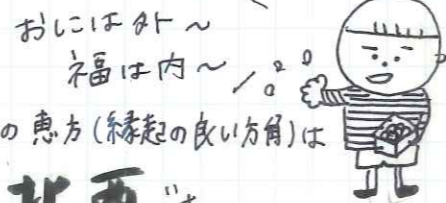 おには外～
福は内～
の恵方(縁起の良い方角)は